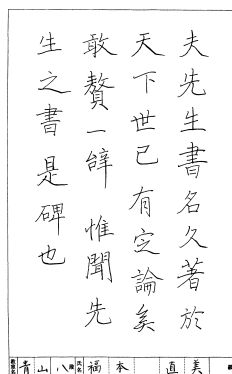 夫先生書名久著於
天下世已有定論矣
敢贅一辭惟聞先
生之書是碑也
教室名 青山 八段 氏名 福本 直美